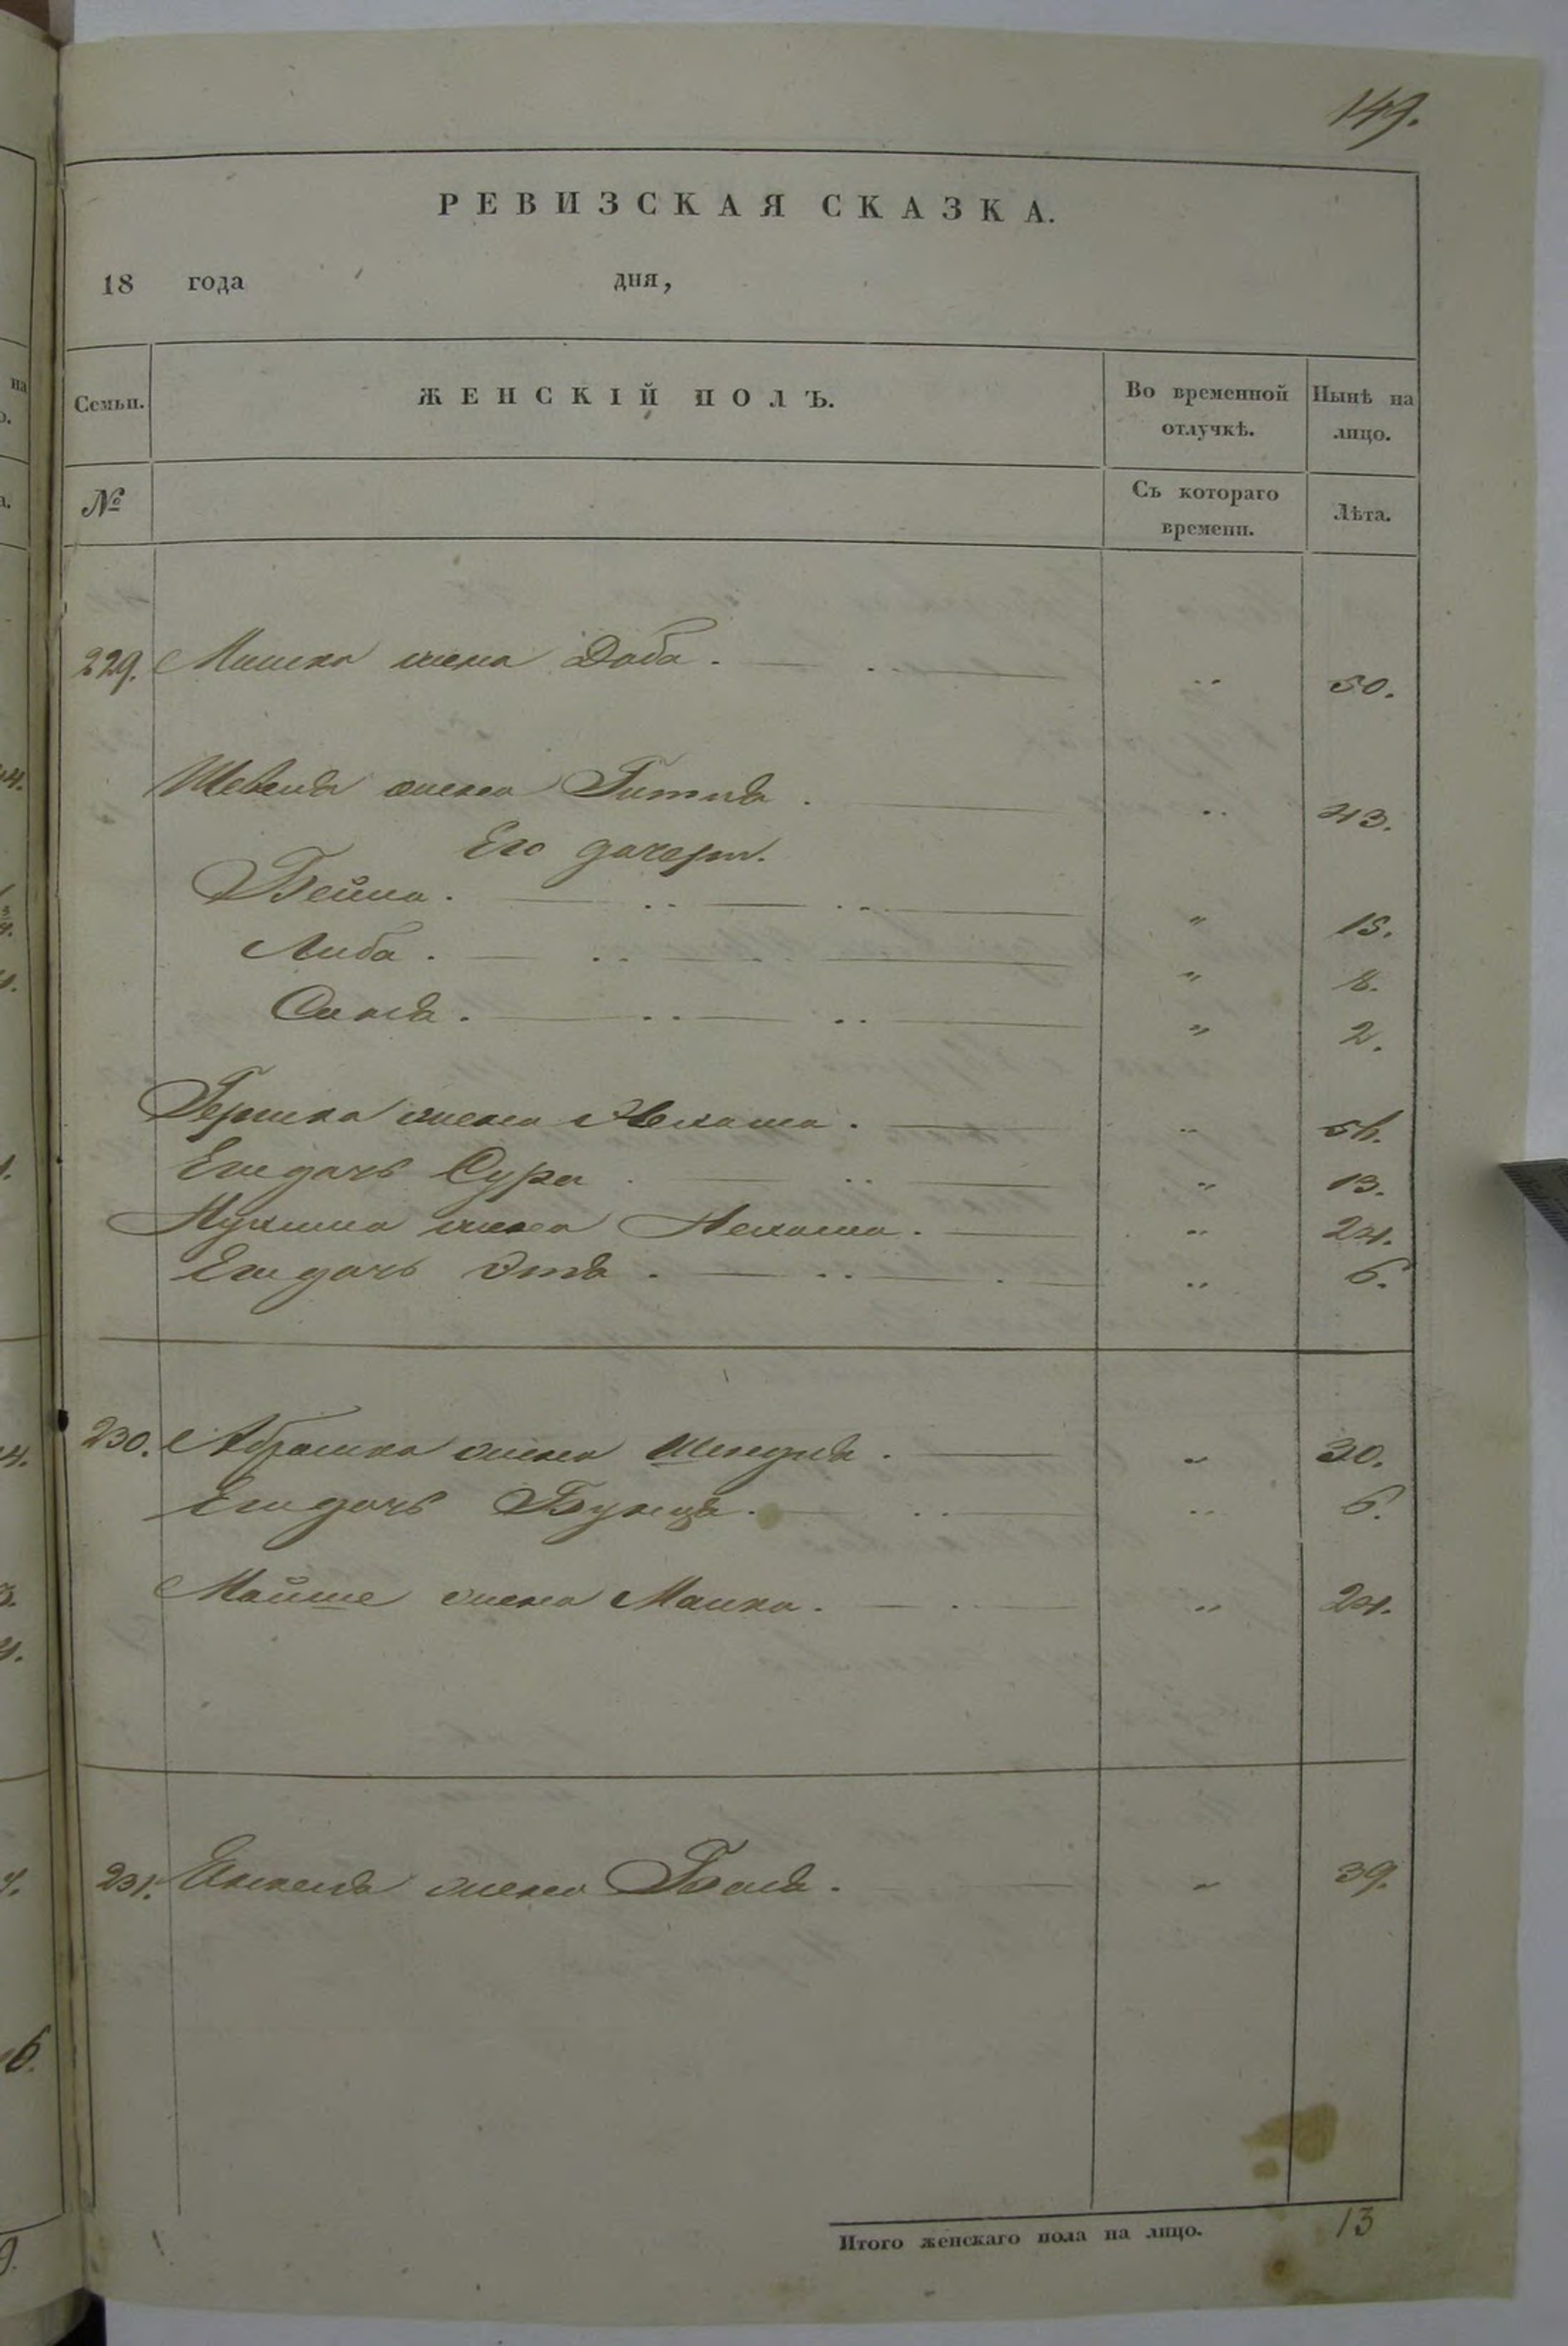 149.
РЕВИЗСКАЯ СКАЗКА.
18 года дня,
Семьи. ЖЕНСКІЙ ПОЛЪ. Во временной отлучкѣ. Нынѣ на лицо.
№ Съ котораго времени. Лѣта.
229. Мишка жена Доба. 50.
жена Гитля. 43.
Его дочери.
Бейла. " 15.
Либа. " 8.
" 2.
Гершка жена 56.
Его дочь Сура 13.
жена Нехама. 24.
Его дочь Этля. 6.
230. Абрашка жена Шендля. 30.
Его дочь 6.
Майше жена Малка. 24.
231. Янкеля жена Бейля. 39.
Итого женскаго пола на лицо. 13